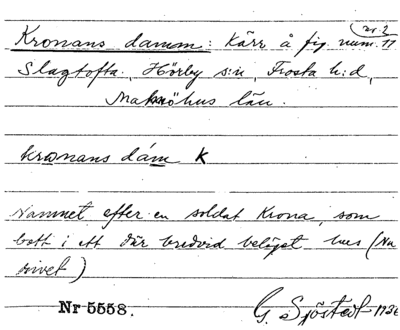 nr 2
Kronans damm: Kärr å fig. num. 11
Slagtofta, Hörby s:n, Frosta h:d,
Malmöhus län.
kronans dám K
Namnet efter en soldat Krona, som
bott i ett där bredvid beläget hus (Nu
rivet)
Nr 5558. G. Sjöstedt 1936